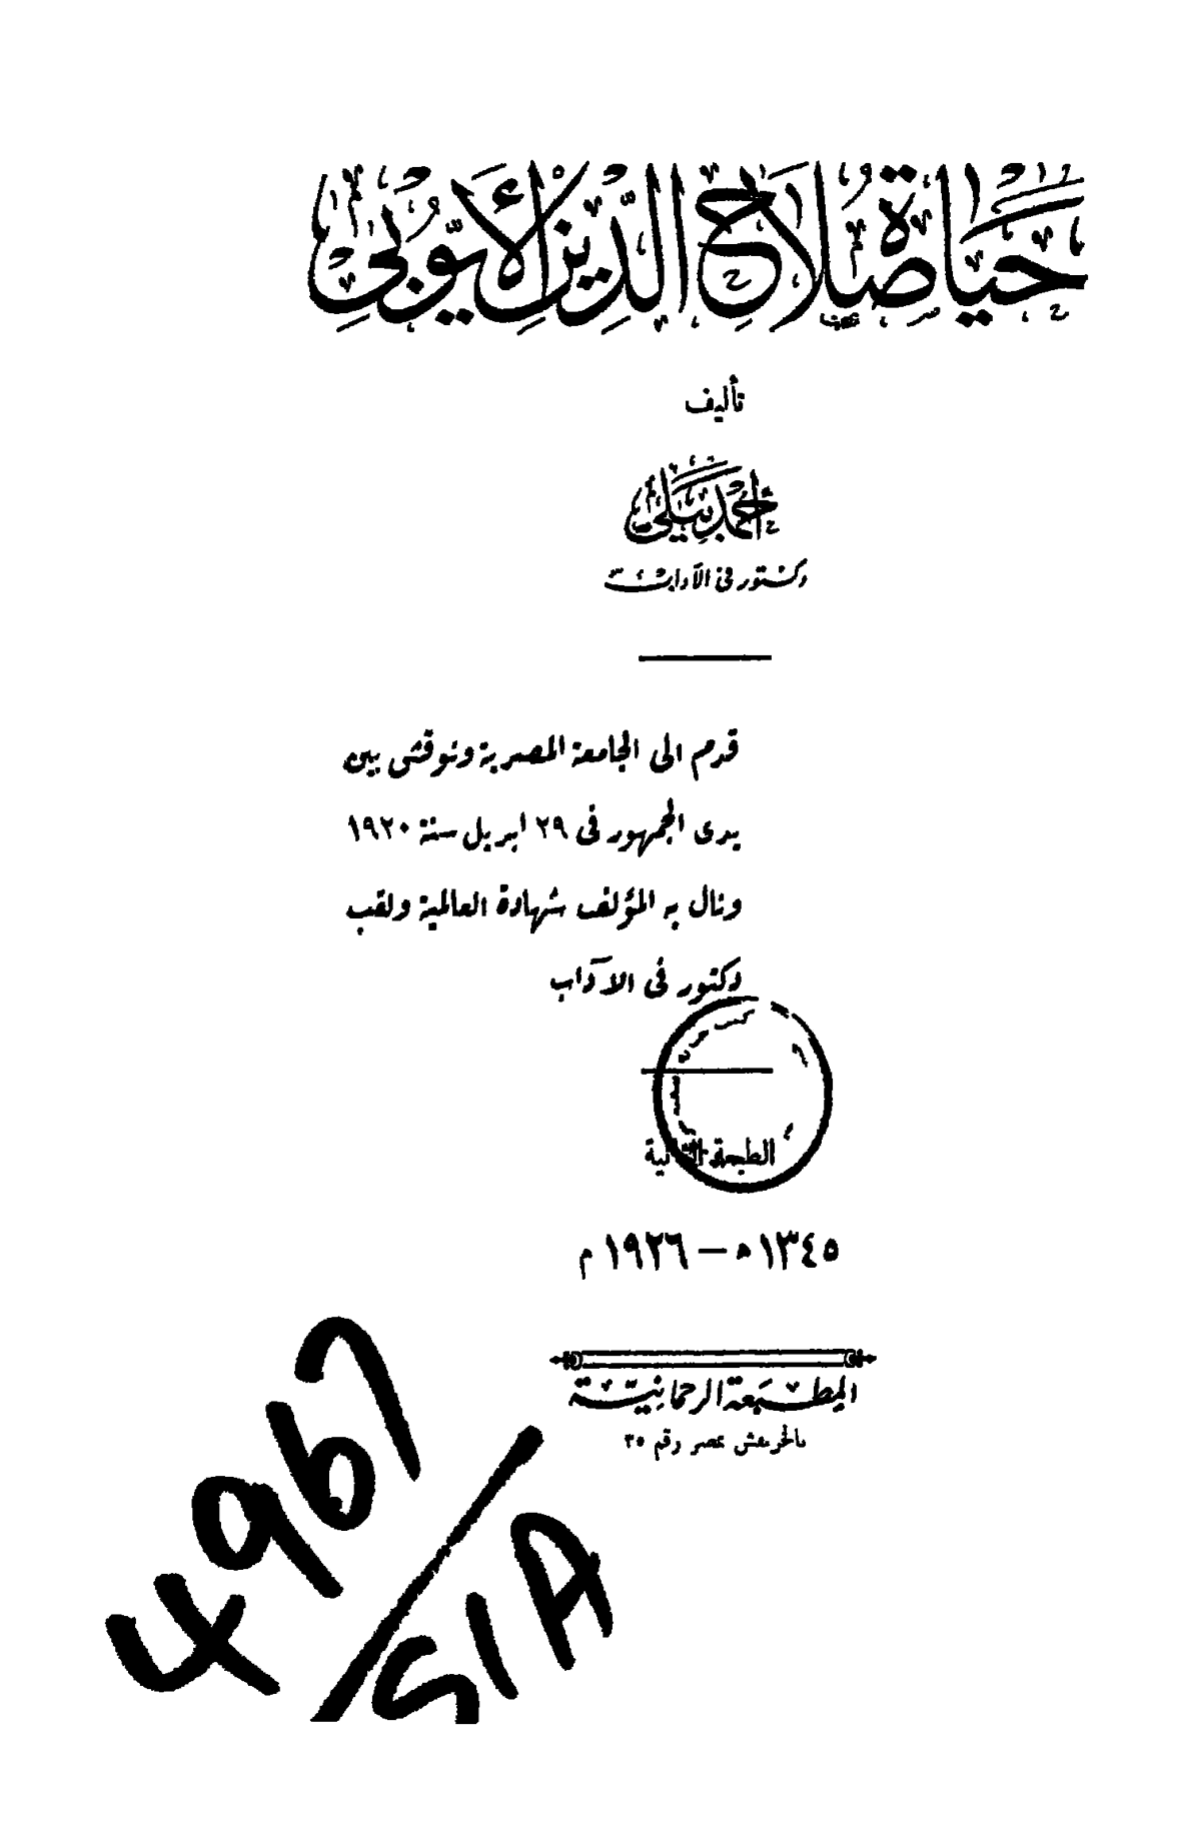 حياة صلاح الدين الأيوبي
تأليف
أحمد بيلي
دكتور في الآداب
قدم الى الجامعة المصرية ونوقش بين
يدى الجمهور فى ٢٩ ابريل سنة ١٩٢٠
ونال به المؤلف شهادة العالمية ولقب
دكتور فى الآداب
الطبعة الثانية
١٣٤٥ ه — ١٩٢٦ م
المطبعة الرحمانية
بالخرنفش بمصر رقم ٣٥
4967/SIA